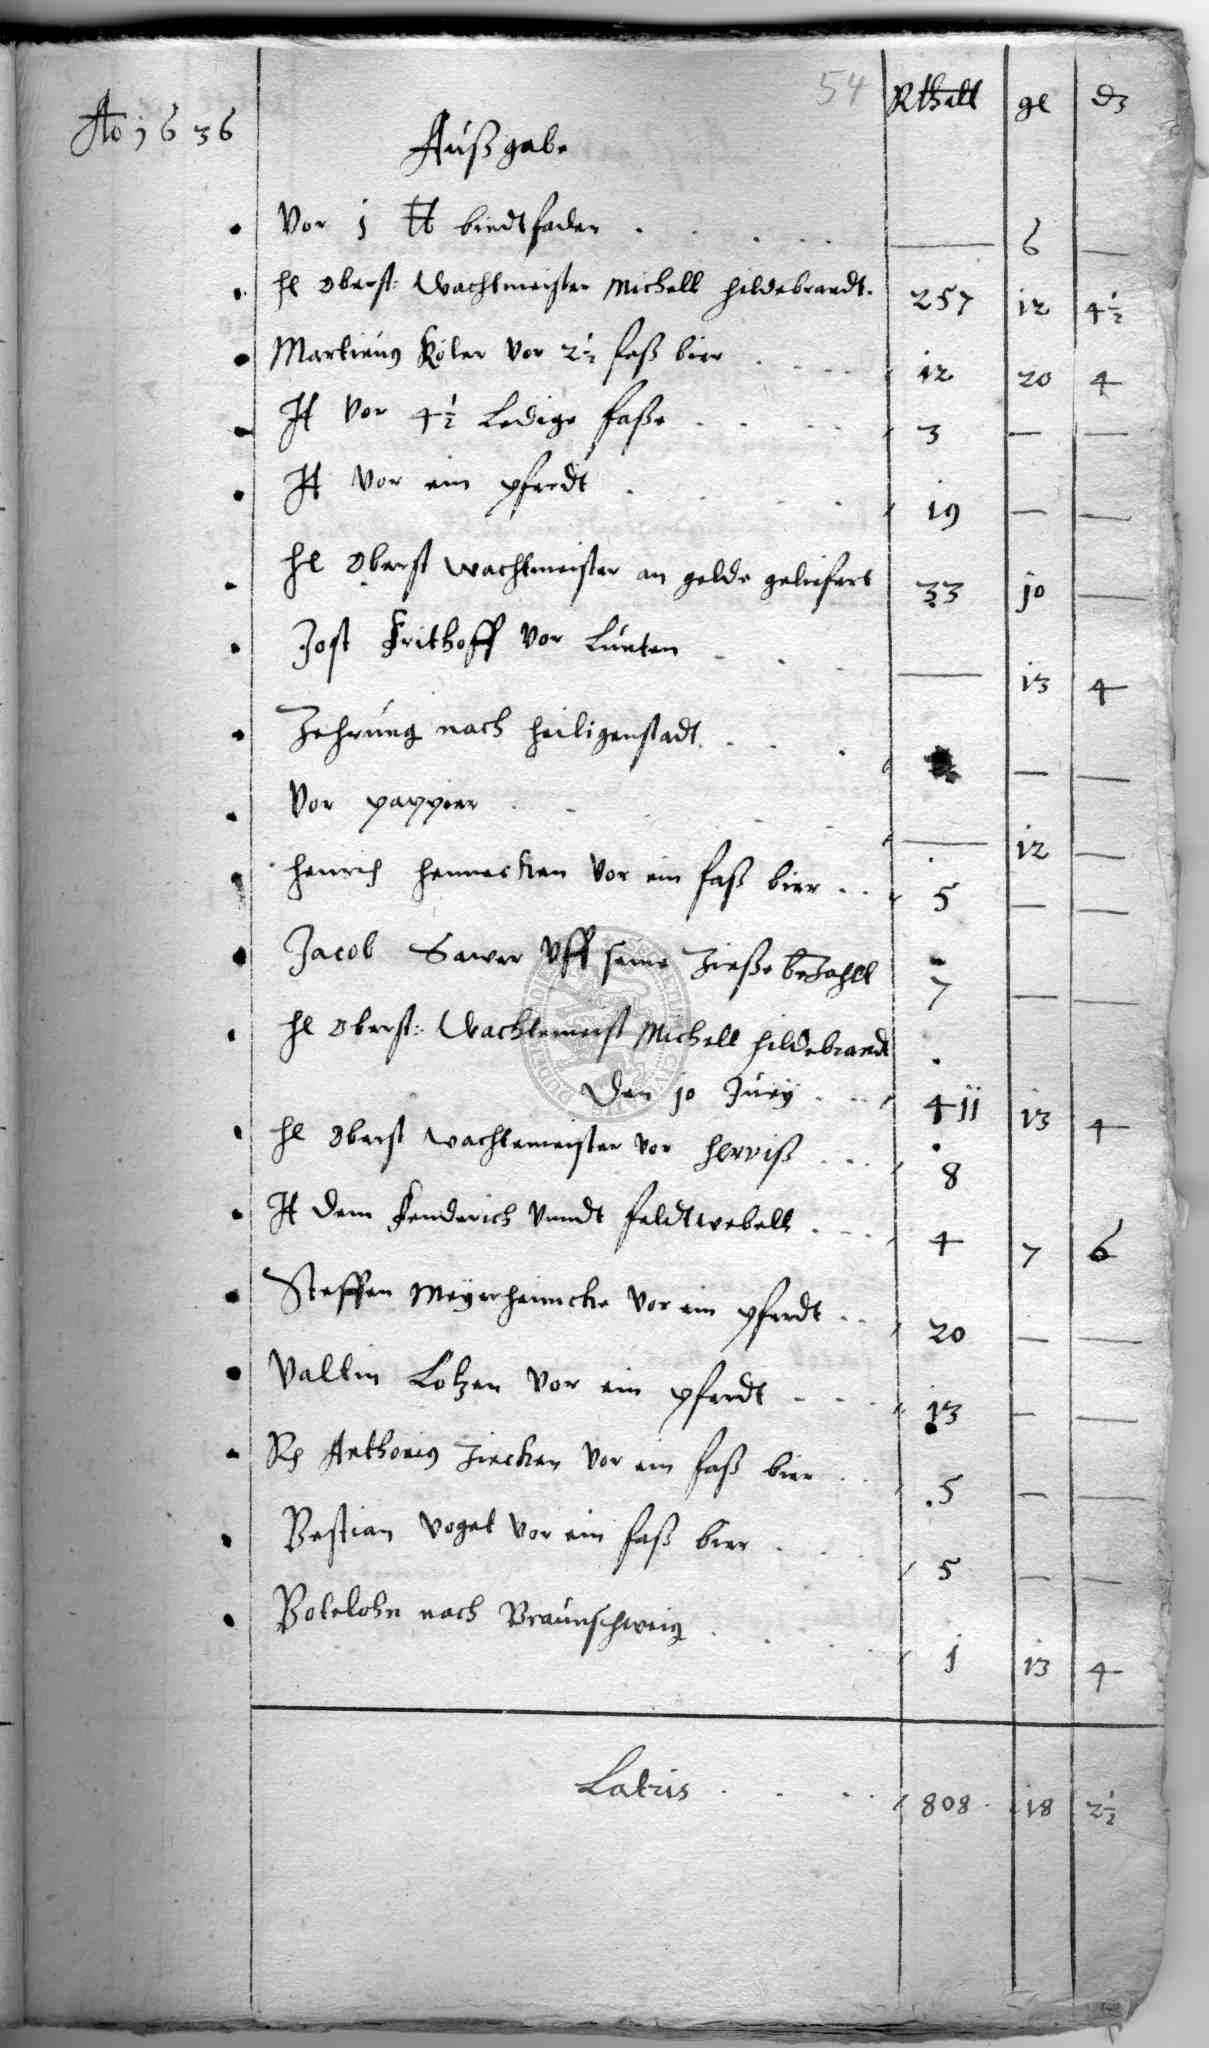 54
Ao 1636 Außgabe Rthall gl d3
Vor 1 ℔ bindtfaden . . . . — 6 —
Hl Oberst: Wachtmeister Michell Hildebrandt. 257 12 4½
Martinus Köler vor 2½ faß bier . . . . 12 20 4
It vor 4½ Ledige faße . . . . 3 — —
It vor ein pferdt . . . . 19 — —
Hl Oberst Wachtmeister an gelde geliefert 33 10 —
Jost Frithoff vor Lunten . . . — 13 4
Zehrung nach Heiligenstadt . . . — —
Vor pappier . . . . . — 12 —
Henrich Hennecken vor ein faß bier . . 5 — —
Jacob Sawer Uff seine Zinße bezahlt 7 — —
Hl Oberst: Wachtemeist Michell Hildebrandt
Den 10 Juny . . . 411 13 4
Hl Oberst Wachtemeister vor . . . 8
It dem Fenderich Unndt feldtwebell . . . 4 7 6
Steffen Meyerheincke vor ein pferdt . . 20 — —
Valtin Lotzen vor ein pferdt . . . 13 — —
Rh Anthonius Zincken vor ein faß bier . . 5 — —
Bastian Vogel vor ein faß bier . . . 5 — —
Botelohn nach Braunschweig . . . . 1 13 4
Latris . . . . 808 18 2½